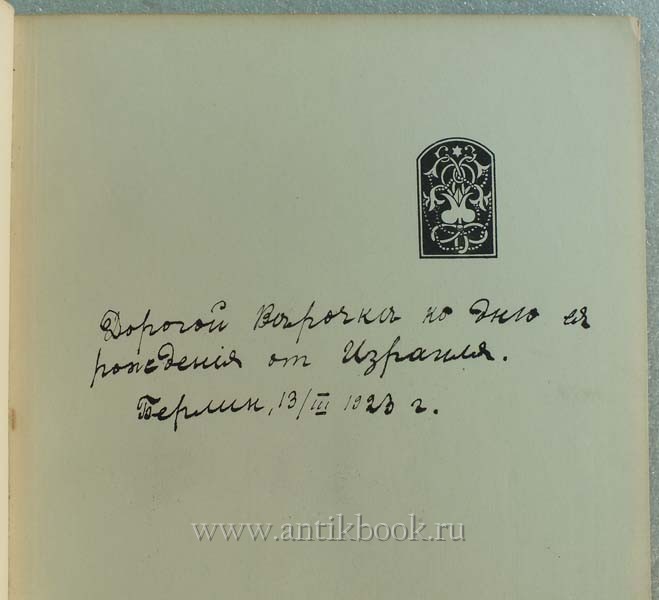 Дорогой Верочке ко дню ея
рожденія от Израиля.
Берлин, 13/III 1923 г.
www.antikbook.ru